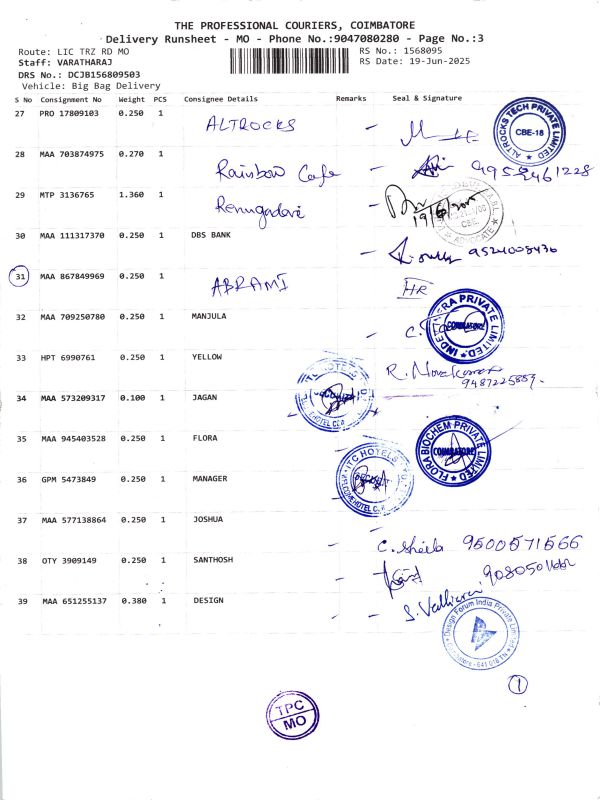 THE PROFESSIONAL COURIERS, COIMBATORE
Delivery Runsheet - MO - Phone No.:9047080280 - Page No.:3
Route: LIC TRZ RD MO
RS No.: 1568095
Staff: VARATHARAJ
RS Date: 19-Jun-2025
DRS No.: DCJB156809503
Vehicle: Big Bag Delivery
S No Consignment No Weight PCS Consignee Details Remarks Seal & Signature
27 PRO 17809103 0.250 1 ALTROCKS
ALTROCKS TECH PRIVATE LIMITED
CBE-18
28 MAA 703874975 0.270 1 Rainbow Cafe
29 MTP 3136765 1.360 1 Renugadevi
ADVOCATE
30 MAA 111317370 0.250 1 DBS BANK 9524008436
31 MAA 867849969 0.250 1 ABRAMI HR
32 MAA 709250780 0.250 1 MANJULA
PRIVATE LIMITED
COIMBATORE
33 HPT 6990761 0.250 1 YELLOW
9487225859.
34 MAA 573209317 0.100 1 JAGAN
35 MAA 945403528 0.250 1 FLORA
FLORA BIOCHEM PRIVATE LIMITED
COIMBATORE
36 GPM 5473849 0.250 1 MANAGER
ITC HOTELS
WELCOMHOTEL
37 MAA 577138864 0.250 1 JOSHUA
C. Sheila 9500571566
38 OTY 3909149 0.250 1 SANTHOSH
39 MAA 651255137 0.380 1 DESIGN
Design Forum India Private Limited
1
TPC
MO